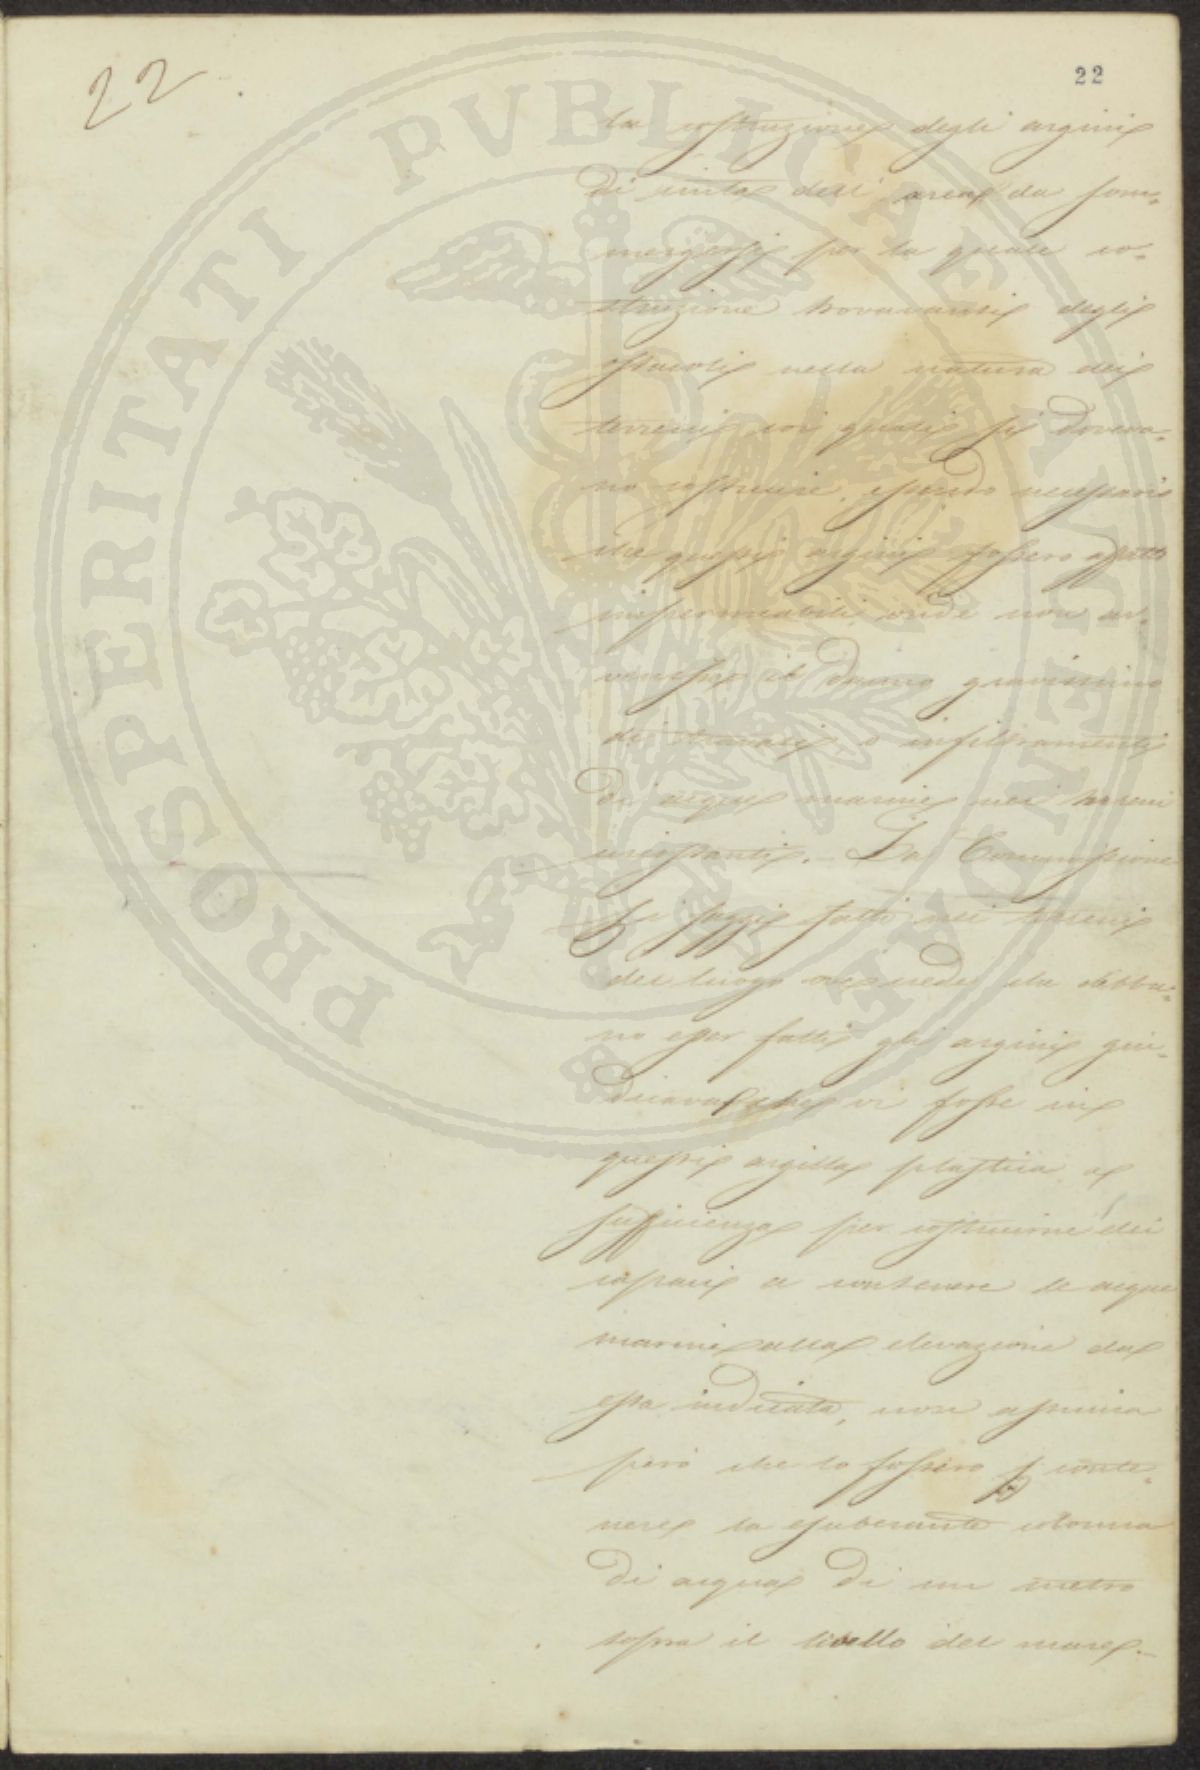 22
22
la costruzione degli argini
di cinta dell'area da som-
mergersi per la quale co-
struzione trovavansi degli
ostacoli nella natura dei
terreni coi quali si doveva-
no costruire, essendo necessario
che questi argini fossero affatto
impermeabili, onde non av-
venisse il danno gravissimo
di travasi o infiltramenti
di acque marine nei terreni
circostanti. - La Commissione
pei saggi fatti nei terreni
del luogo ove crede che debba-
no esser fatti gli argini giu-
dicava che vi fosse in
questi argilla plastica a
sufficienza per costruirne dei
capaci a contenere le acque
marine alla elevazione da
essa indicata, non assicura
però che lo fossero p conte-
nere la esuberante colonna
di acqua di un metro
sopra il livello del mare. -
PROSPERITATI PVBLICAE AVGENDAE